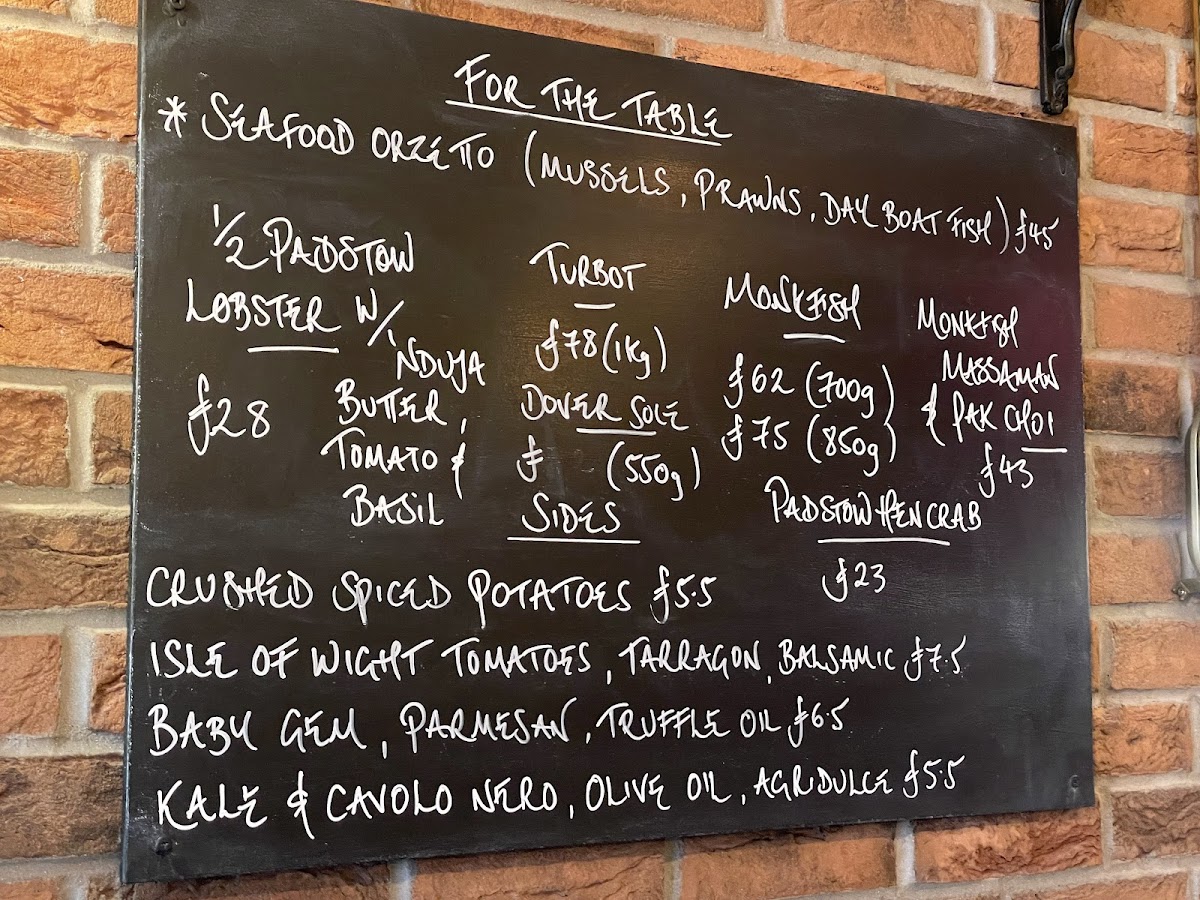 FOR THE TABLE
* SEAFOOD ORZETTO (MUSSELS, PRAWNS, DAY BOAT FISH) £45
1/2 PADSTOW
LOBSTER W/
NDUJA
£28
BUTTER,
TOMATO &
BASIL
TURBOT
£78 (1Kg)
DOVER SOLE
£ (550g)
MONKFISH
£62 (700g)
£75 (850g)
MONKFISH
MASSAMAN
& PAK CHOI
£43
PADSTOW HEN CRAB
£23
SIDES
CRUSHED SPICED POTATOES £5.5
ISLE OF WIGHT TOMATOES, TARRAGON, BALSAMIC £7.5
BABY GEM, PARMESAN, TRUFFLE OIL £6.5
KALE & CAVOLO NERO, OLIVE OIL, AGRIDULCE £5.5